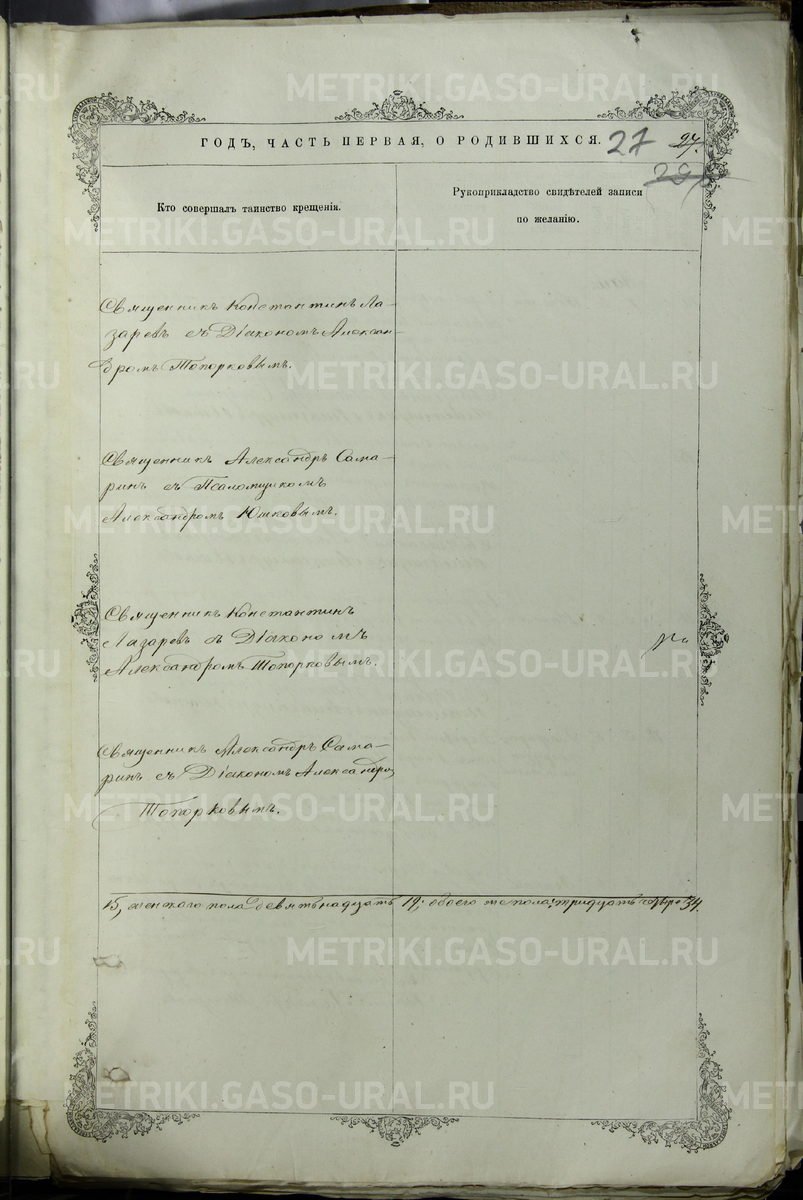 ГОДЪ, ЧАСТЬ ПЕРВАЯ, О РОДИВШИХСЯ. 27 27.
29
Кто совершалъ таинство крещенія.
Рукоприкладство свидѣтелей записи
по желанію.
Священникъ Константинъ Ла-
заревъ съ Діакономъ Алексан-
дромъ Топорковымъ.
Священникъ Александръ Сама-
ринъ съ Псаломщикомъ
Александромъ Юшковымъ.
Священникъ Константинъ
Лазаревъ съ Діакономъ
Александромъ Топорковымъ.
Священникъ Александръ Сама-
ринъ съ Діакономъ Александро
Топорковымъ.
15, женскаго пола девятнадцать 19; обоего же пола: тридцать четыре 34.
METRIKI.GASO-URAL.RU